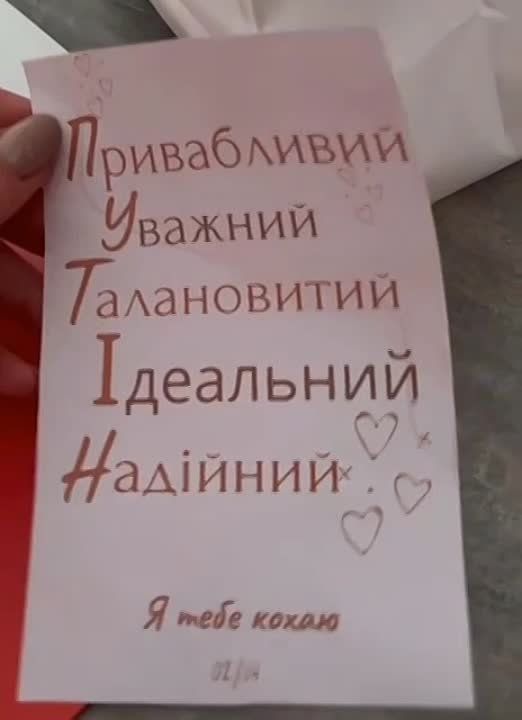 Привабливий
Уважний
Талановитий
Ідеальний
Надійний
Я тебе кохаю